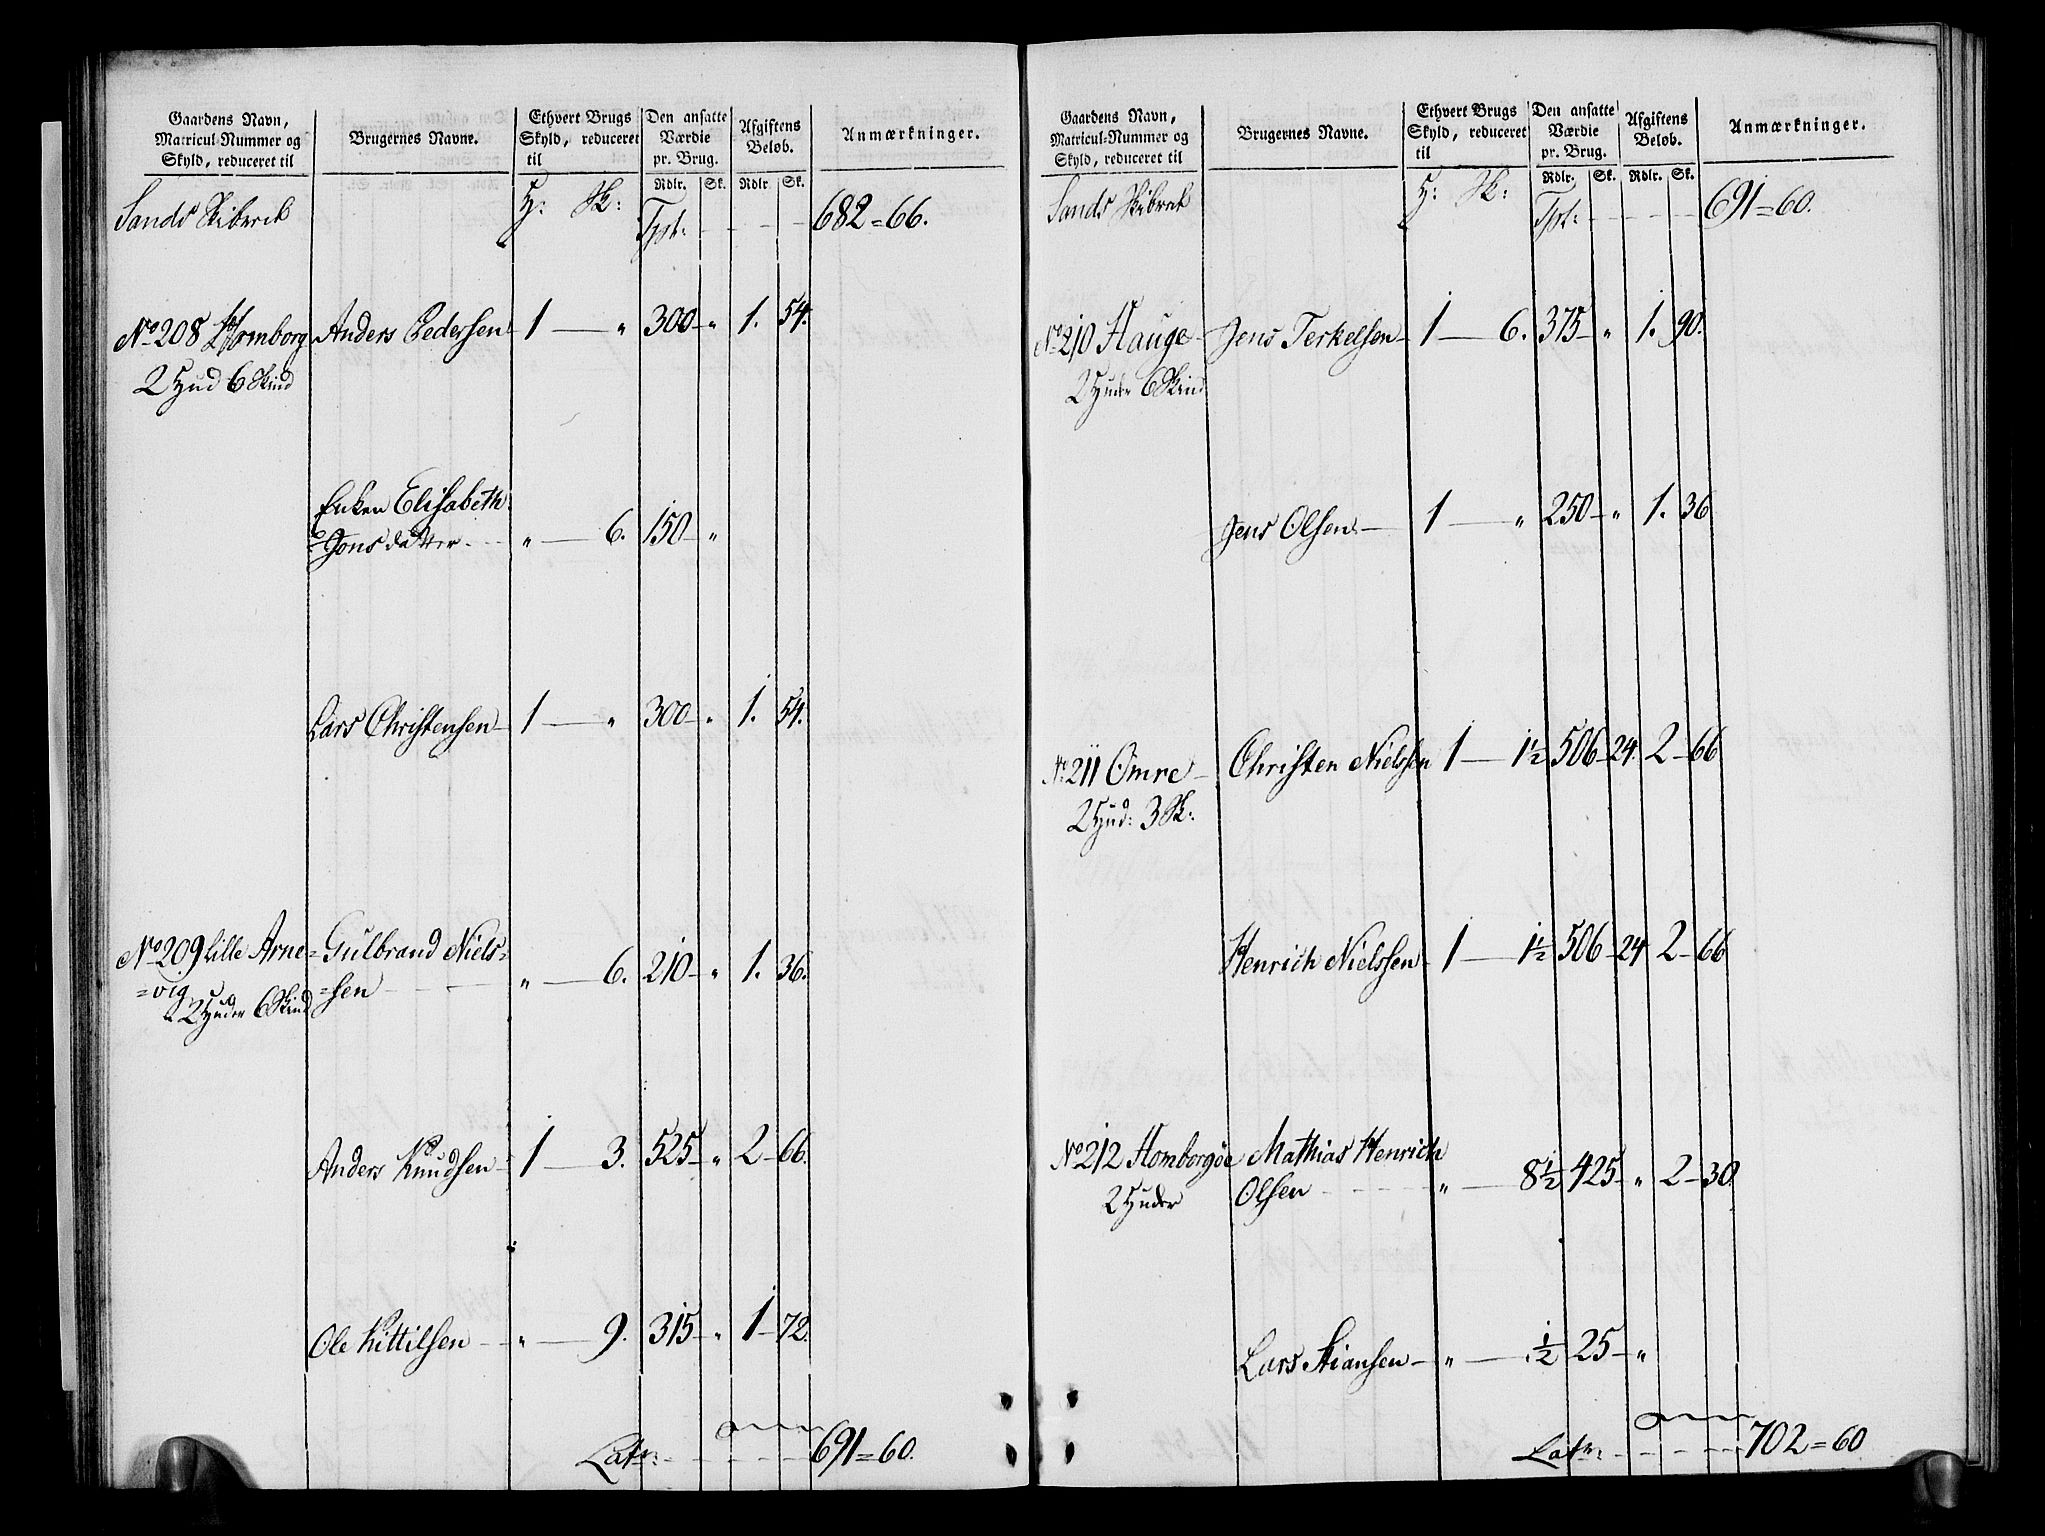 Gaardens Navn, Matricul-Nummer og Skyld, reduceret til | Brugernes Navne. | Ethvert Brugs Skyld, reduceret til | Den ansatte Værdie pr. Brug. | Afgiftens Beløb. | Anmærkninger.
Rdlr. Sk. Rdlr. Sk.
Sands Skibreit H: Sk: Tpt: - - - - 682=66.
No 208 Homborg Anders Pedersen 1 — „ 300 - „ 1. 54.
2 Hud 6 Skind
Enken Elisabeth
=Jonsdatter - - „ — 6. 150 - „
Lars Christensen 1 — „ 300 - „ 1. 54.
No 209 Lille Arne= Gulbrand Niels=
=vig =sen - - „ — 6. 210 - „ 1. 36.
2 Huder 6 Skind
Anders Knudsen 1 — 3. 525 - „ 2 - 66.
Ole Kittilsen - „ — 9. 315 - „ 1 - 72.
Latr: - - - - 691=60.
Gaardens Navn, Matricul-Nummer og Skyld, reduceret til | Brugernes Navne. | Ethvert Brugs Skyld, reduceret til | Den ansatte Værdie pr. Brug. | Afgiftens Beløb. | Anmærkninger.
Rdlr. Sk. Rdlr. Sk.
Sands Skibreit H: Sk: Tpt: - - - - 691=60.
No 210 Hauge - Jens Terkelsen - 1 — 6. 375 - „ 1. 90.
2 Huder 6 Skind
Jens Olsen - 1 — „ 250 - „ 1. 36
No 211 Omre - Christen Nielssen 1 — 1½ 506 - 24. 2 - 66
2 Hud: 3 Sk:
Henrich Nielssen 1 — 1½ 506 - 24 2 - 66
No 212 Homborgöe Mathias Henrich
2 Huder Olsen - - - „ — 8½ 425 - „ 2 - 30
Lars Stiansen - „ — ½ 25 - „
Latr: - - - - 702=60